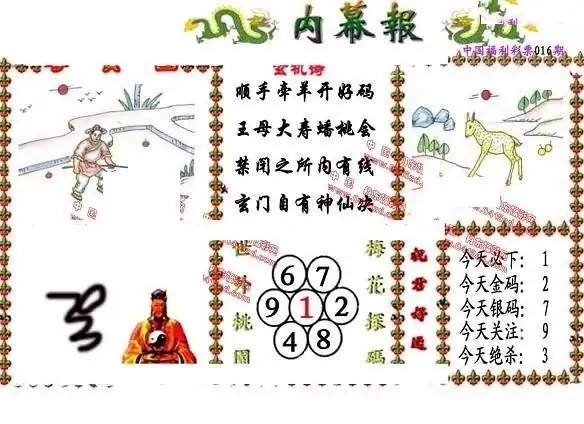 内幕報
利
中国福利彩票016期
玄机诗
顺手牵羊开好码
王母大寿蟠桃会
禁闭之所内有线
玄门自有神仙决
世外桃園
6 7
9 1 2
4 8
梅花探碼
祝君好运
今天必下：1
今天金码：2
今天银码：7
今天关注：9
今天绝杀：3